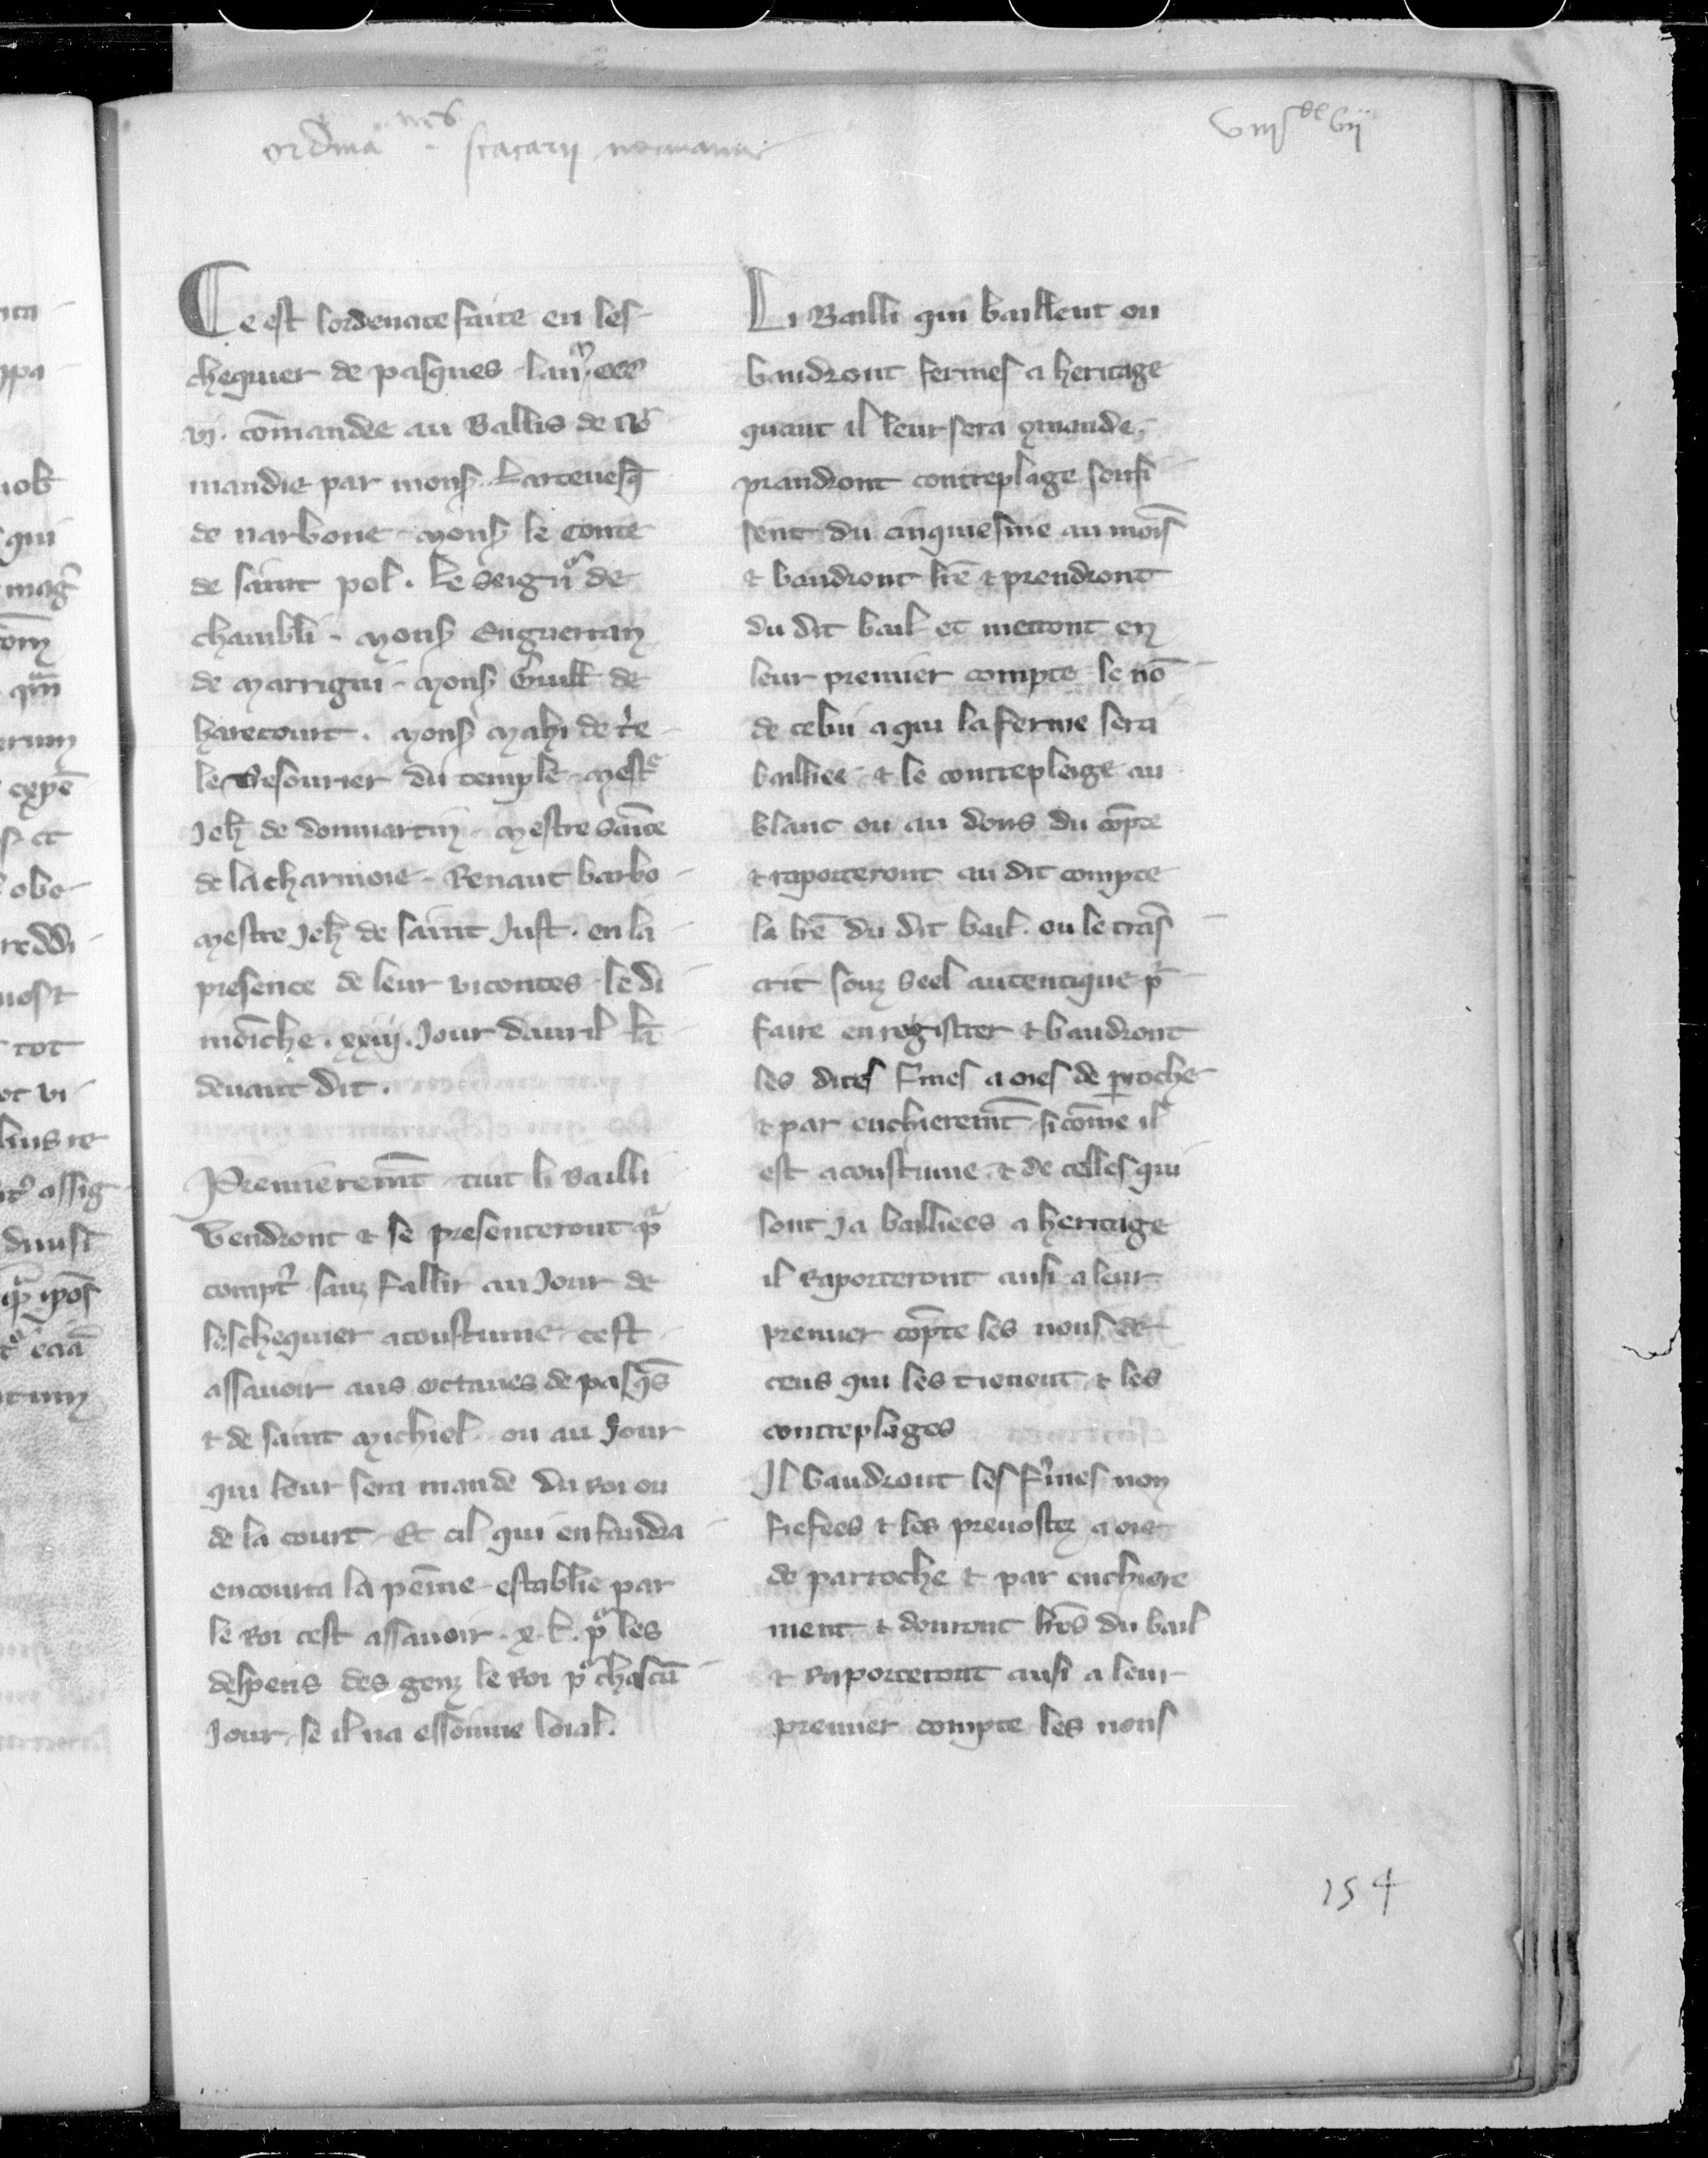 ordinationes scacarii normannie
viii^xx vii
Ce est lordenance faite en les
chequier de pasques lan m ccc
vj. cõmandee au Baillis de nor
mandie par monsʼ Larcevesqʼ
de narbone monsʼ le conte
de saint pol. Le seignʳ de
chambli. monsʼ Enguerran
de marrigni. monsʼ Guillʼ de
harecourt. monsʼ mahi de tʼe
le Tresorier du temple. mestʳe
Jehʼ de donmartin. mestre Sãce
de la charmoie. Renaut barbo
mestre Jehʼ de saint Just. en la
presence de leur vicontes le di
mẽche. xxiiij. Jour davril lã
devant dit.
Premieremẽt tuit li Bailli
vendront & se presenteront pʳ
comptʼ sanz faillir au Jour de
leschequier acoustume cest
assavoir aus octaves de pasqʼs
& de saint michiel ou au Jour
qui leur sera mande du roi ou
de la court Et cil qui en faudra
encourra la peine establie par
le Roi cest assavoir. x. lʼ. pʳ les
despens des genz le Roi pʳ chascũ
Jour se il na essoinne loial.
Li Bailli qui baillent ou
baudront fermes a heritage
quant il leur sera 9mande.
prandront contreplage soufi
sent du cinquiesme au moĩs
& baudront lrẽ & prendront
du dit bail et metront en
leur premier compte le nõ
de celui a qui la ferme sera
bailliee & le contrepleige au
blanc ou au dons du cõpte
& raporteront au dit compte
la lrẽ du dit bail. ou le trãs
crit souz seel autentique pʳ
faire enregistrer & baudront
les dites fʼmes a oies de proche
& par encheremẽt si cõme il
est acoustume. & de celles qui
sont Ja bailliees a heritage
il raporteront ausi a leur
premier cõpte les nons de
ceus qui les tienent & les
contreplages
Il baudront les fʼmes non
fiefees & les prevostez a oie
de parroche & par enchiere
ment & donront lrẽs du bail
& raporteront ausi a leur
premier compte les nons
154